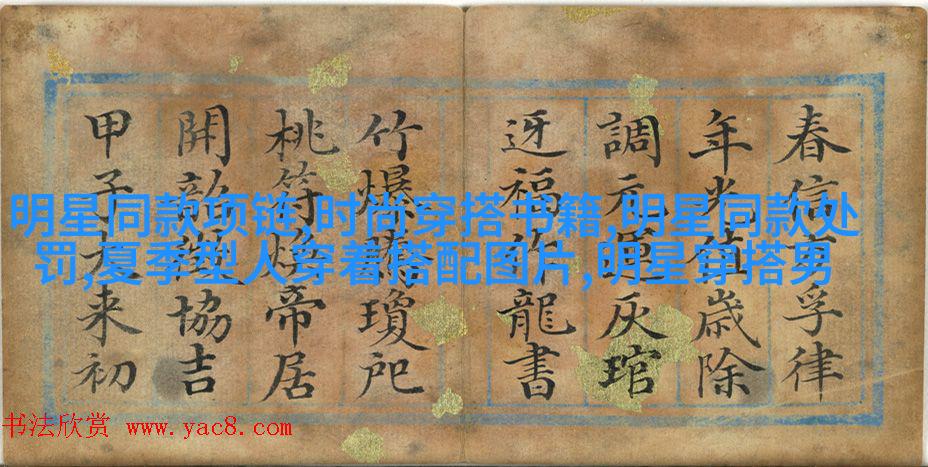 春信孚律
年光值歲除
調元灰琯
迓福龍書
竹爆瓊
桃符煥帝居
開韶協吉
甲子来初
明星同款项链,时尚穿搭书籍,明星同款处
罚,夏季型人穿着搭配图片,明星穿搭男
书法欣赏 www.yac8.com